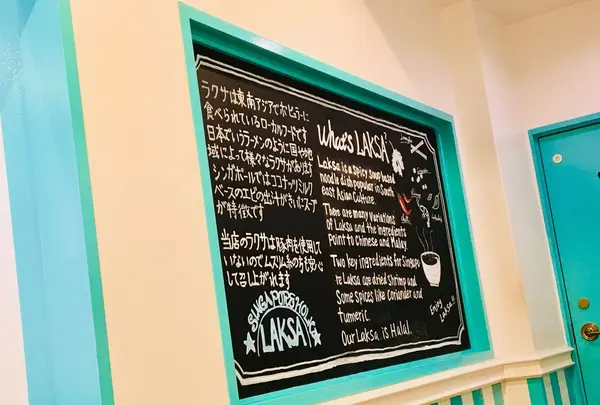 ラクサは東南アジアでポピュラーに
食べられているローカルフードです
日本でいうラーメンのように国や地
域によって様々なラクサがあります
シンガポールではココナッツミルク
ベースのエビの出汁がきいたスープ
が特徴です
当店のラクサは豚肉を使用して
いないのでムスリム系の方も安心
して召し上がれます
SINGAPORE HOLIC
LAKSA
What's LAKSA?
Laksa is a spicy soup based
noodle dish popular in South
east Asian Culture.
There are many Variations
of Laksa and the ingredients
Point to Chinese and Malay
Two key ingredients for Singapo
re Laksa are dried Shrimp and
Some Spices like Coriander and
turmeric.
Our Laksa is Halal.
Enjoy
Laksa!!